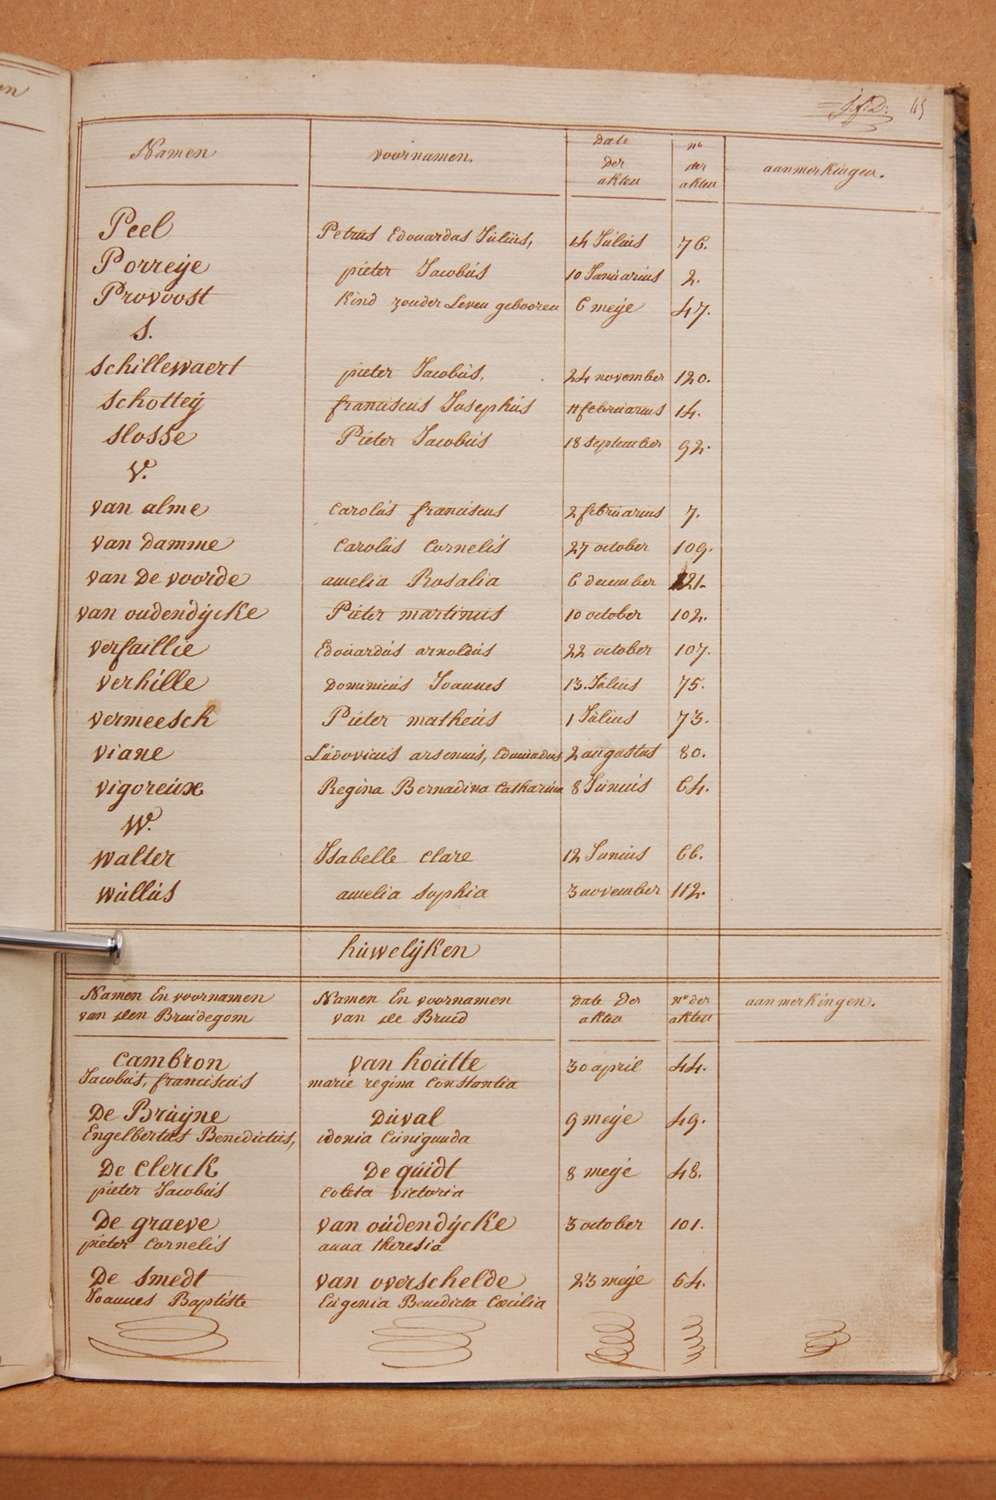 45
Namen voornamen. Date Der akten n° der akten aanmerkingen.
Peel Petrus Edouardus Julius, 14 Julius 76.
Porreije pieter Jacobus 10 Januarius 2.
Provoost Kind zonder Leven gebooren 6 meije 47.
S.
Schillewaert pieter Jacobus, 24 november 120.
Schotteij franciscus Josephus 11 februarius 14.
Slosse Pieter Jacobus 18 september 92.
V.
van alme Carolus franciscus 2 februarius 7.
van Damme Carolus Cornelis 27 october 109.
van De voorde amelia Rosalia 6 december 121.
van oudendÿcke Pieter martinus 10 october 102.
verfaillie Edouardus arnoldus 22 october 107.
verhille Dominicus Joannes 13. Julius 75.
vermeesch Pieter matheus 1 Julius 73.
viane Ludovicus arsenius, Edouardus 2 augustus 80.
vigoreux Regina Bernadina Catharina 8 Junius 64.
W.
walter Isabelle Clare 12 Junius 66.
wullus amelia Sophia 3 november 112.
huwelÿken
Namen En voornamen van den Bruidegom Namen En voornamen van de Bruid Date Der akten n° der akten aanmerkingen.
Cambron van houtte 30 april 44.
Jacobus, franciscus marie regina Constantia
De Bruÿne Duval 9 meije 49.
Engelbertus Benedictus, idonia Cunigunda
De Clerck De quidt 8 meije 48.
pieter Jacobus Coleta victoria
De graeve van oudendÿcke 3 october 101.
pieter Cornelis anna theresia
De Smedt van overschelde 23 meije 54.
Joannes Baptiste Eugenia Benedicta Cæcilia